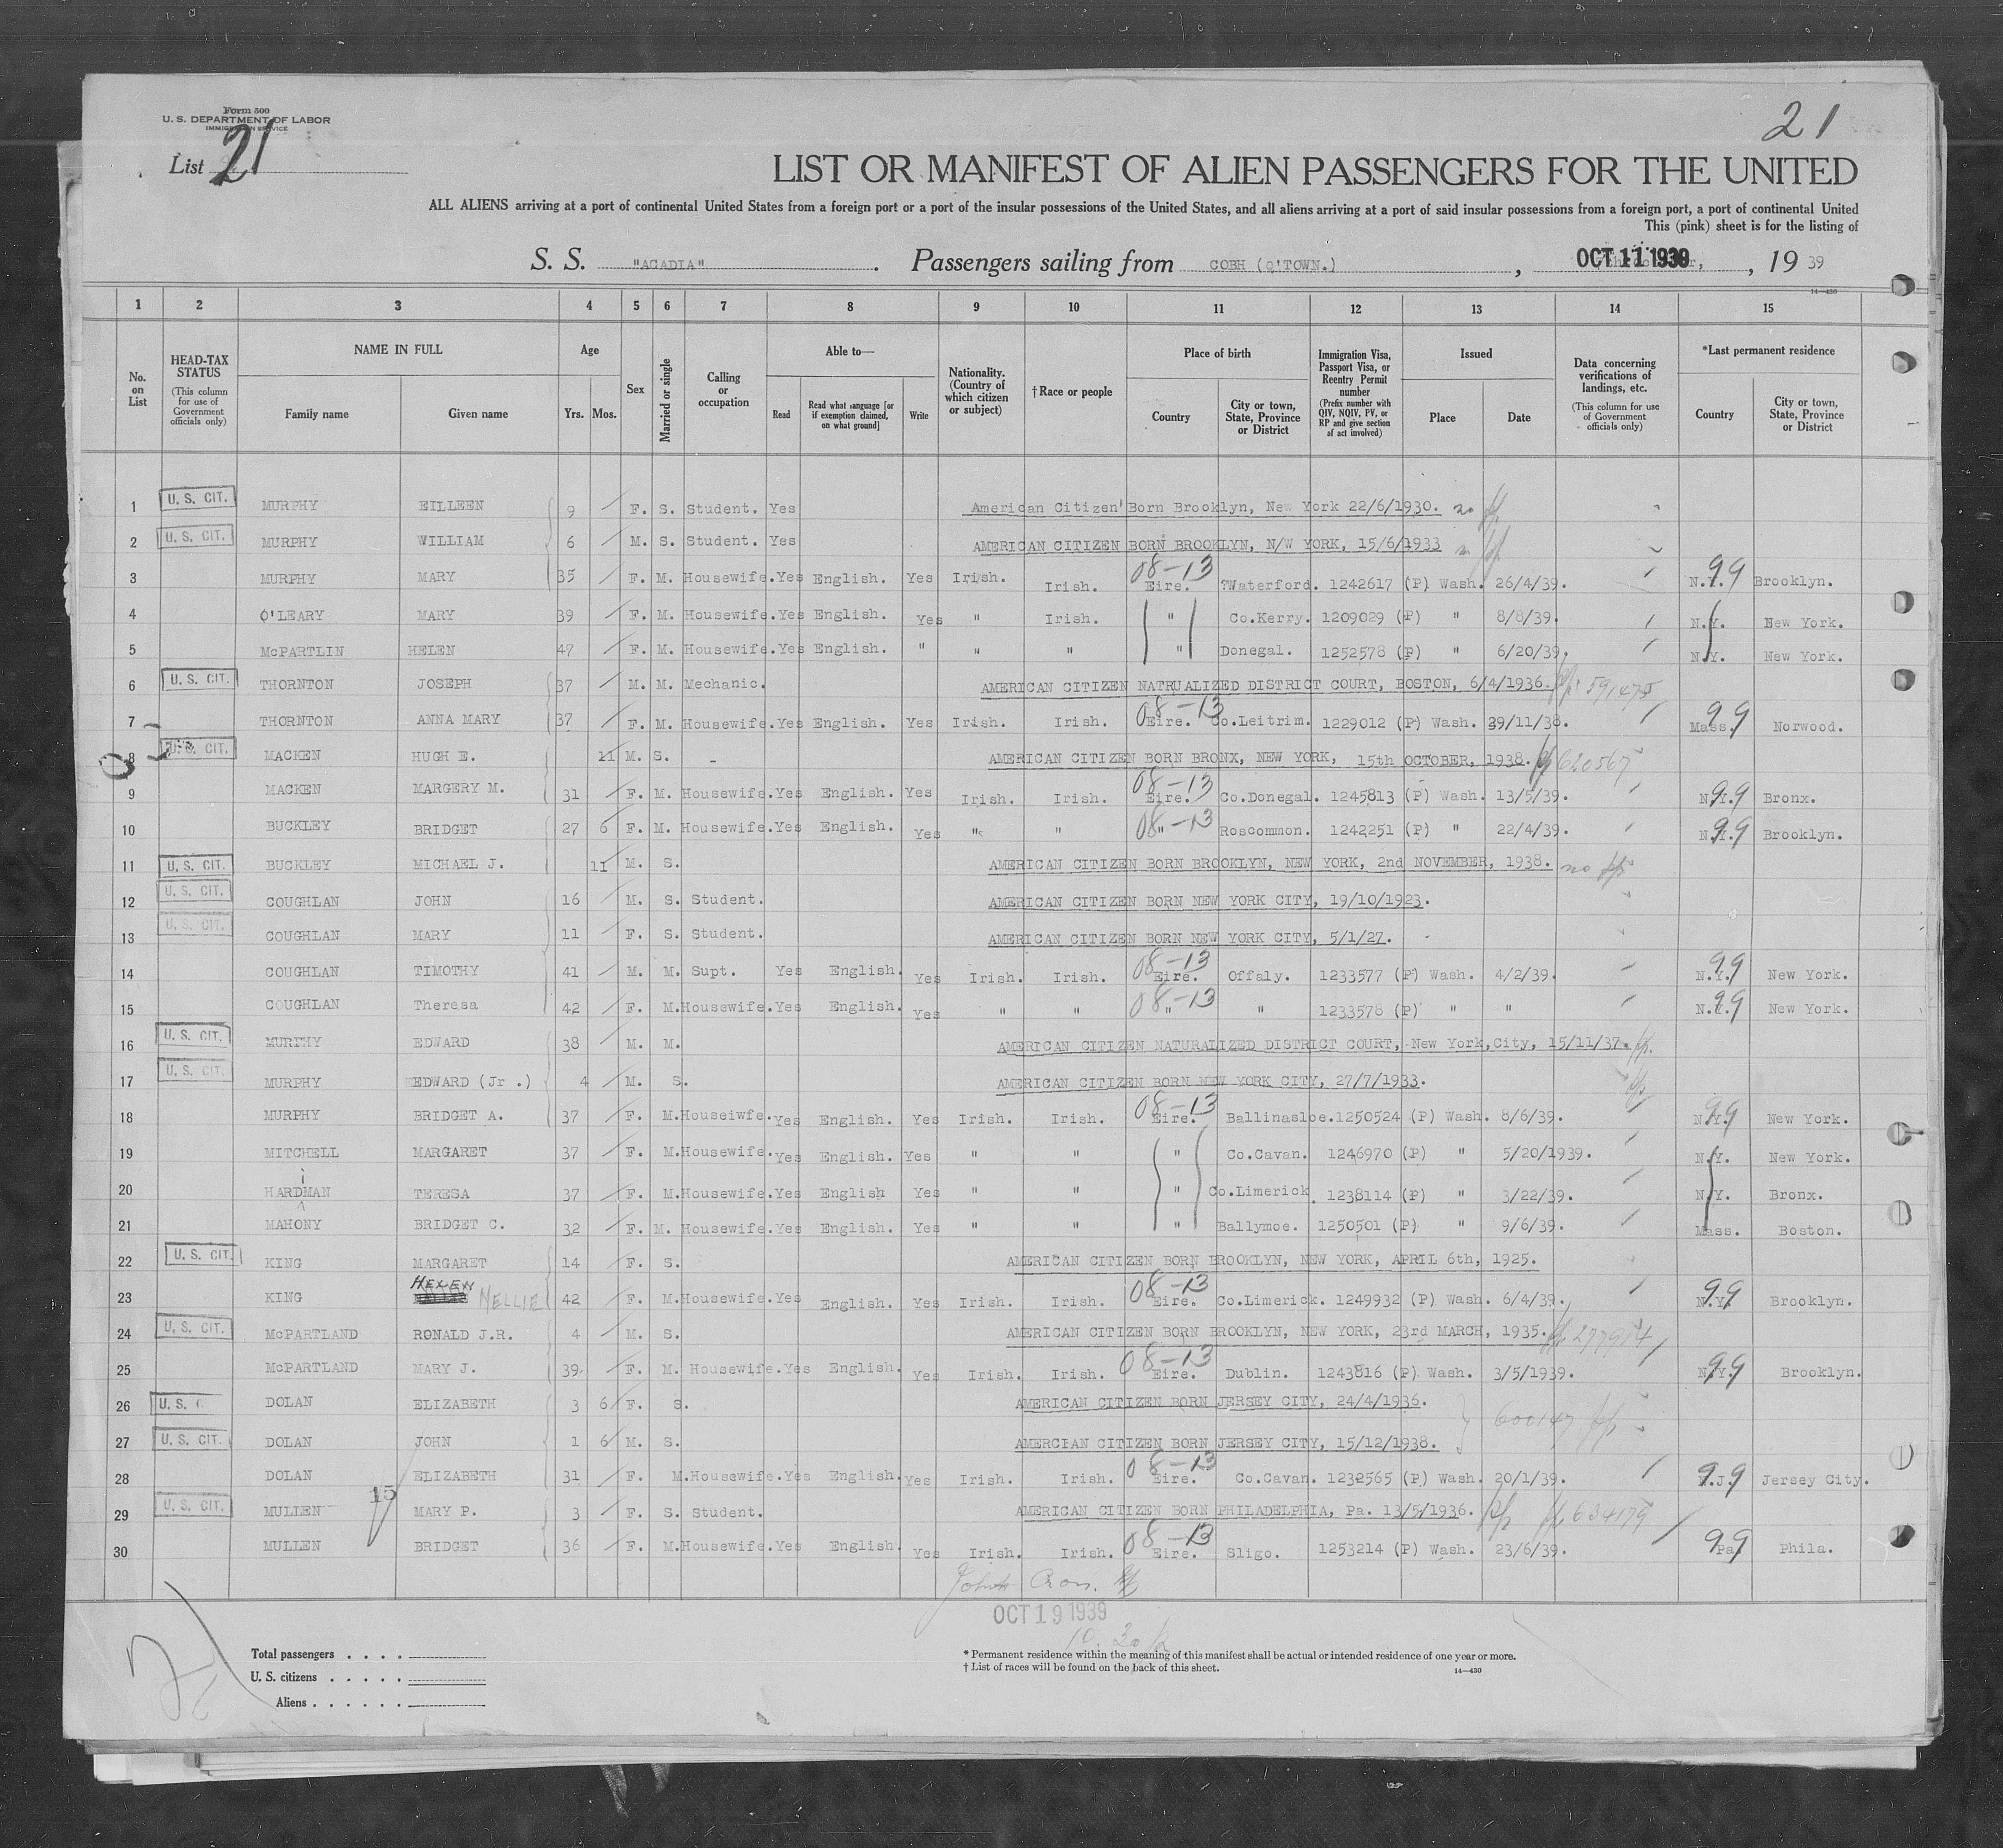 Form 500
U. S. DEPARTMENT OF LABOR
IMMIGRATION SERVICE
21
List 21
LIST OR MANIFEST OF ALIEN PASSENGERS FOR THE UNITED
ALL ALIENS arriving at a port of continental United States from a foreign port or a port of the insular possessions of the United States, and all aliens arriving at a port of said insular possessions from a foreign port, a port of continental United
This (pink) sheet is for the listing of
S. S. "ACADIA". Passengers sailing from COBH (Q'TOWN.), OCT 11 1939, 19 39
14—430
1 2 3 4 5 6 7 8 9 10 11 12 13 14 15
No. on List
HEAD-TAX STATUS (This column for use of Government officials only)
NAME IN FULL Family name Given name
Age Yrs. Mos.
Sex
Married or single
Calling or occupation
Able to— Read Read what language [or if exemption claimed, on what ground] Write
Nationality. (Country of which citizen or subject)
†Race or people
Place of birth Country City or town, State, Province or District
Immigration Visa, Passport Visa, or Reentry Permit number (Prefix number with QIV, NQIV, PV, or RP and give section of act involved)
Issued Place Date
Data concerning verifications of landings, etc. (This column for use of Government officials only)
*Last permanent residence Country City or town, State, Province or District
1 U. S. CIT. MURPHY EILLEEN 9 F. S. Student. Yes American Citizen Born Brooklyn, New York 22/6/1930. no
2 U. S. CIT. MURPHY WILLIAM 6 M. S. Student. Yes AMERICAN CITIZEN BORN BROOKLYN, N/W YORK, 15/6/1933
3 MURPHY MARY 35 F. M. Housewife. Yes English. Yes Irish. Irish. 08-13 Eire. ?Waterford. 1242617 (P) Wash. 26/4/39. N.Y. 99 Brooklyn.
4 O'LEARY MARY 39 F. M. Housewife. Yes English. Yes " Irish. " Co.Kerry. 1209029 (P) " 8/8/39. N.Y. New York.
5 McPARTLIN HELEN 47 F. M. Housewife. Yes English. " " " " Donegal. 1252578 (P) " 6/20/39. N.Y. New York.
6 U. S. CIT. THORNTON JOSEPH 37 M. M. Mechanic. AMERICAN CITIZEN NATRUALIZED DISTRICT COURT, BOSTON, 6/4/1936. 591475
7 THORNTON ANNA MARY 37 F. M. Housewife. Yes English. Yes Irish. Irish. 08-13 Eire. Co.Leitrim. 1229012 (P) Wash. 29/11/38. Mass. 99 Norwood.
8 U. S. CIT. MACKEN HUGH E. 11 M. S. - AMERICAN CITIZEN BORN BRONX, NEW YORK, 15th OCTOBER, 1938. 620567
9 MACKEN MARGERY M. 31 F. M. Housewife. Yes English. Yes Irish. Irish. 08-13 Eire. Co.Donegal. 1245813 (P) Wash. 13/5/39. N.Y. 99 Bronx.
10 BUCKLEY BRIDGET 27 6 F. M. Housewife. Yes English. Yes " " 08-13 " Roscommon. 1242251 (P) " 22/4/39. N.Y. 99 Brooklyn.
11 U. S. CIT. BUCKLEY MICHAEL J. 11 M. S. AMERICAN CITIZEN BORN BROOKLYN, NEW YORK, 2nd NOVEMBER, 1938. no
12 U. S. CIT. COUGHLAN JOHN 16 M. S. Student. AMERICAN CITIZEN BORN NEW YORK CITY, 19/10/1923.
13 U. S. CIT. COUGHLAN MARY 11 F. S. Student. AMERICAN CITIZEN BORN NEW YORK CITY, 5/1/27.
14 COUGHLAN TIMOTHY 41 M. M. Supt. Yes English. Yes Irish. Irish. 08-13 Eire. Offaly. 1233577 (P) Wash. 4/2/39. N.Y. 99 New York.
15 COUGHLAN Theresa 42 F. M. Housewife. Yes English. Yes " " 08-13 " " 1233578 (P) " " N.Y. 99 New York.
16 U. S. CIT. MURPHY EDWARD 38 M. M. AMERICAN CITIZEN NATURALIZED DISTRICT COURT, New York,City, 15/11/37.
17 U. S. CIT. MURPHY EDWARD (Jr .) 4 M. S. AMERICAN CITIZEN BORN NEW YORK CITY, 27/7/1933.
18 MURPHY BRIDGET A. 37 F. M. Houseiwfe. Yes English. Yes Irish. Irish. 08-13 Eire. Ballinasloe. 1250524 (P) Wash. 8/6/39. N.Y. 99 New York.
19 MITCHELL MARGARET 37 F. M. Housewife. Yes English. Yes " " " Co.Cavan. 1246970 (P) " 5/20/1939. N.Y. New York.
20 HARDiMAN TERESA 37 F. M. Housewife. Yes English Yes " " " Co.Limerick. 1238114 (P) " 3/22/39. N.Y. Bronx.
21 MAHONY BRIDGET C. 32 F. M. Housewife. Yes English. Yes " " " Ballymoe. 1250501 (P) " 9/6/39. Mass. Boston.
22 U. S. CIT. KING MARGARET 14 F. S. AMERICAN CITIZEN BORN BROOKLYN, NEW YORK, APRIL 6th, 1925.
23 KING HELEN NELLIE 42 F. M. Housewife. Yes English. Yes Irish. Irish. 08-13 Eire. Co.Limerick. 1249932 (P) Wash. 6/4/39. N.Y. 99 Brooklyn.
24 U. S. CIT. McPARTLAND RONALD J.R. 4 M. S. AMERICAN CITIZEN BORN BROOKLYN, NEW YORK, 23rd MARCH, 1935. 277954
25 McPARTLAND MARY J. 39 F. M. Housewife. Yes English. Yes Irish. Irish. 08-13 Eire. Dublin. 1243816 (P) Wash. 3/5/1939. N.Y. 99 Brooklyn.
26 U. S. C DOLAN ELIZABETH 3 6 F. S. AMERICAN CITIZEN BORN JERSEY CITY, 24/4/1936.
27 U. S. CIT. DOLAN JOHN 1 6 M. S. AMERCIAN CITIZEN BORN JERSEY CITY, 15/12/1938. 600147
28 DOLAN ELIZABETH 31 F. M. Housewife. Yes English. Yes Irish. Irish. 08-13 Eire. Co.Cavan. 1232565 (P) Wash. 20/1/39. N.J. 99 Jersey City.
15
29 U. S. CIT. MULLEN MARY P. 3 F. S. Student. AMERICAN CITIZEN BORN PHILADELPHIA, Pa. 13/5/1936. 634179
30 MULLEN BRIDGET 36 F. M. Housewife. Yes English. Yes Irish. Irish. 08-13 Eire. Sligo. 1253214 (P) Wash. 23/6/39. Pa. 99 Phila.
OCT 19 1939
Total passengers . . . .
U. S. citizens . . . . .
Aliens . . . . . .
* Permanent residence within the meaning of this manifest shall be actual or intended residence of one year or more.
† List of races will be found on the back of this sheet.
14—430